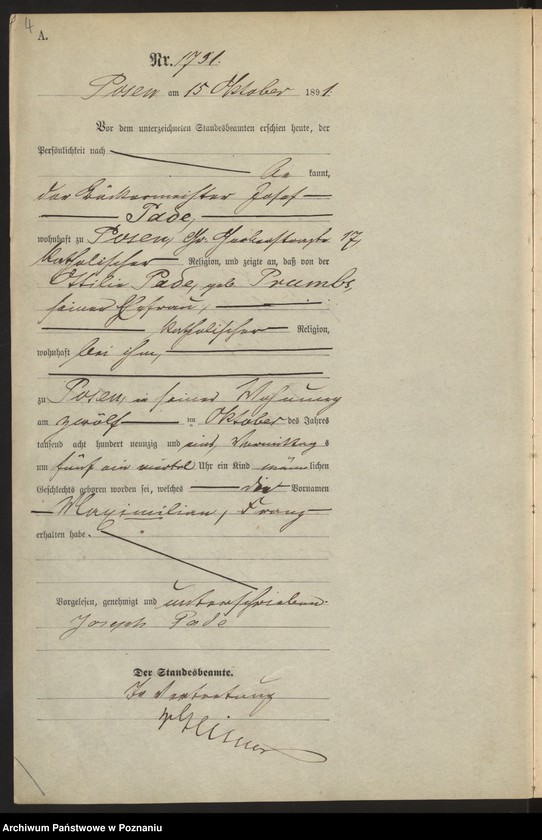 4
A.
Nr. 1791.
Posen am 15 Oktober 1891.
Vor dem unterzeichneten Standesbeamten erschien heute, der
Persönlichkeit nach
be kannt,
der Bäckermeister Josef
Pade,
wohnhaft zu Posen, Gr. Gerberstraße 17,
katholischer Religion, und zeigte an, daß von der
Ottilie Pade, geb. Prumbs,
seiner Ehefrau,
katholischer Religion,
wohnhaft bei ihm,
zu Posen, in seiner Wohnung
am zwölf ten Oktober des Jahres
tausend acht hundert neunzig und eins, Vormittag s
um fünf ein viertel Uhr ein Kind männ lichen
Geschlechts geboren worden sei, welches die Vornamen
Maximilian, Franz
erhalten habe.
Vorgelesen, genehmigt und unterschrieben.
Joseph Pade
Der Standesbeamte.
In Vertretung
Archiwum Państwowe w Poznaniu